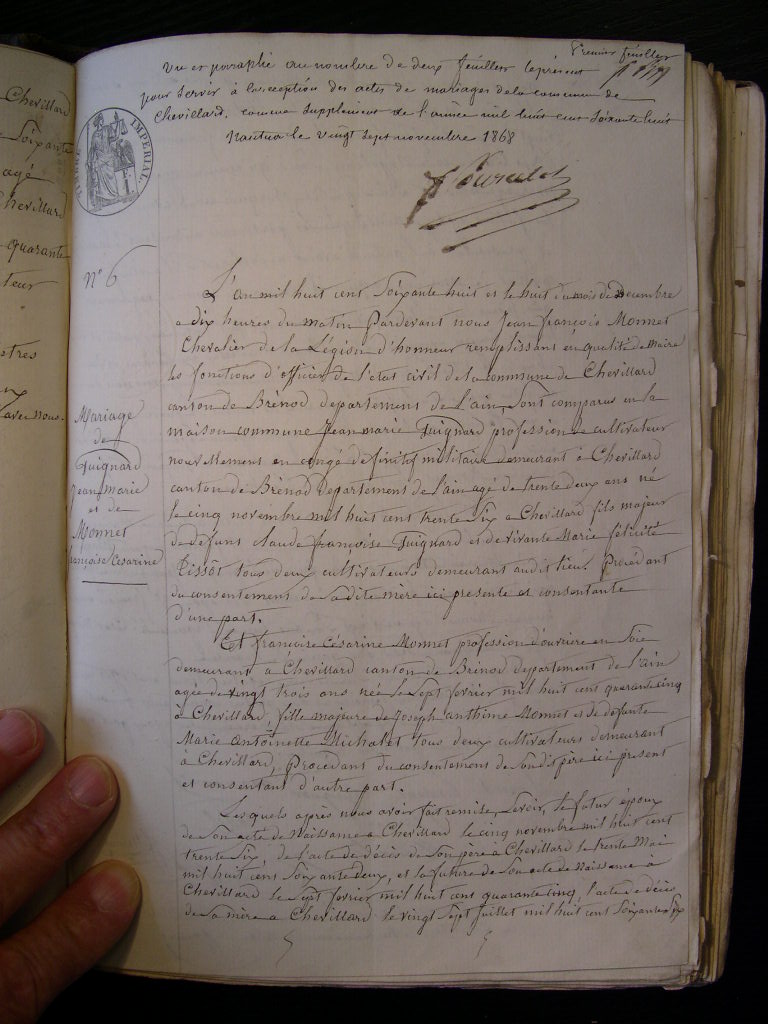 Premier feuillet
Vu et paraphé au nombre de deux feuillets le présent
pour servir à la réception des actes de mariages de la commune de
Chevillard, comme supplément de l'année mil huit cent soixante huit
Nantua le vingt sept novembre 1868
TIMBRE IMPERIAL
Chevillard
Soixante
agé
Chevillard
quarante
teur
stres
avec nous.
N° 6
Mariage
de
Guignard
Jean Marie
et de
Monnet
Françoise Césarine
L'an mil huit cent soixante huit et le huit du mois de Décembre
a dix heures du matin Pardevant nous Jean françois Monnet
Chevalier de la Légion d'honneur remplissant en qualité de Maire
les fonctions d'officier de l'état civil de la commune de Chevillard
canton de Brénod departement de l'ain, Sont comparus en la
maison commune Jean marie Guignard profession de cultivateur
nouvellement en congé définitif militaire demeurant à Chevillard
canton de Brénod Departement de l'ain agé de trente deux ans né
le cinq novembre mil huit cent trente Six a Chevillard fils majeur
de défunt claude françoise Guignard et de vivante Marie félicité
Tissot tous deux cultivateurs demeurant audit lieu. Procédant
du consentement de sa dite mère ici presente et consentante
d'une part.
Et françoise Césarine Monnet profession d'ouvrière en Soie
demeurant à Chevillard canton de Brénod departement de l'ain
agée de vingt trois ans née le Sept fevrier mil huit cent quarante cinq
à Chevillard, fille majeure de Joseph anthime Monnet et de défunte
Marie Antoinette Michalet tous deux cultivateurs demeurant
à Chevillard, Procédant du consentement de son dit père ici present
et consentant d'autre part.
Lesquels après nous avoir fait remise, Savoir, le futur époux
de son acte de Naissance a Chevillard le cinq novembre mil huit cent
trente Six, de l'acte de décès de son père à Chevillard le trente Mai
mil huit cent Soixante deux, et la future de son acte de Naissance à
Chevillard le Sept fevrier mil huit cent quarante cinq, l'acte de décès
de sa mère a Chevillard le vingt Sept Juillet mil huit cent Soixante Six